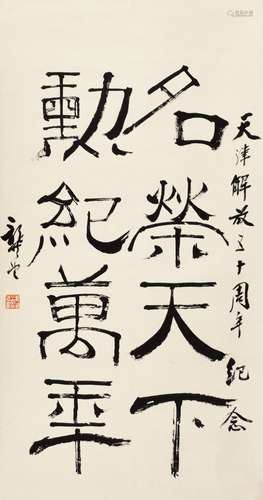 天津解放三十周年紀念
名榮天下
勳紀萬年
龔望